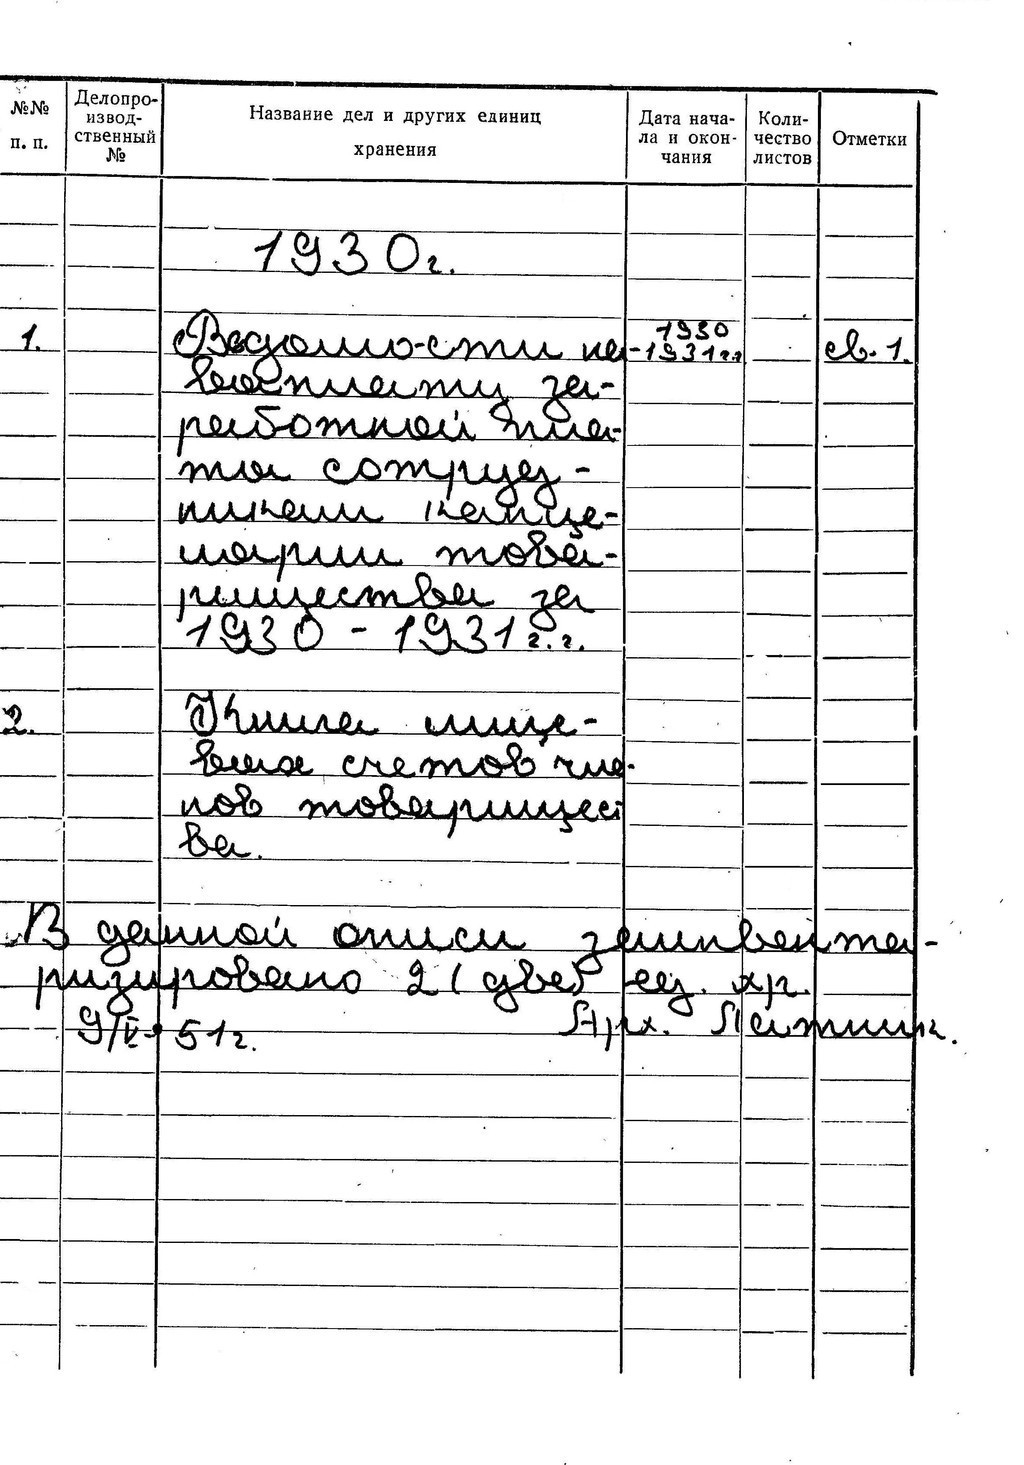 №№ п. п.
Делопро-
извод-
ственный
№
Название дел и других единиц
хранения
Дата нача-
ла и окон-
чания
Коли-
чество
листов
Отметки
1930г.
1. Ведомости на 1930 св. 1.
выплату за- -1931г.г
работной пла-
ты сотруд-
никам канце-
лярии това-
рищества за
1930 - 1931г.г.
2. Книга лице-
вых счетов чле-
нов товарищест
ва.
В данной описи заинвента-
ризировано 2 (две) ед. хр.
9/V-51г. Арх.